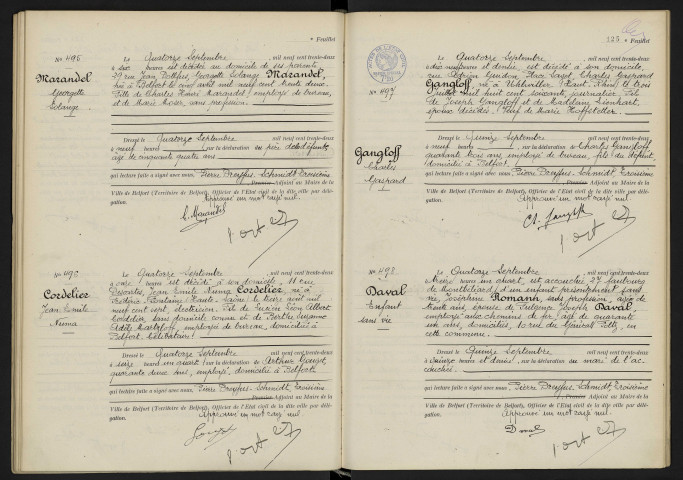 * Feuillet
Nº 495
Marandel
Georgette
Solange
Le Quatorze Septembre, mil neuf cent trente-deux
heures est décédée au domicile de ses parents
29 rue Jean Dollfus, Georgette Solange Marandel,
née à Belfort le cinq avril mil neuf cent trente deux.
Fille de Charles Henri Marandel, employé de bureau,
et de Marie Moser, sans profession.
Dressé le Quatorze Septembre, mil neuf cent trente-deux
à neuf heures, sur la déclaration du père de la défunte,
âgé de cinquante quatre ans
qui lecture faite a signé avec nous, Pierre Dreyfus-Schmidt, troisième
Premier Adjoint au Maire de la
Ville de Belfort (Territoire de Belfort), Officier de l'Etat civil de la dite ville par délé-
gation. Approuvé un mot rayé nul.
Nº 496
Cordelier
Jean Emile
Numa
Le Quatorze Septembre, mil neuf cent trente-deux
à onze heures est décédé à son domicile, 11 rue
Descartes, Jean Emile Numa Cordelier, né à
Frédéric Fontaine (Haute-Saône) le treize avril mil
neuf cent sept, électricien. Fils de Lucien Léon Albert
Cordelier, sans domicile connu et de Berthe Suzanne
employée de bureau, domiciliée à
Belfort. Célibataire
Dressé le Quatorze Septembre, mil neuf cent trente-deux
à seize heures un quart, sur la déclaration de Arthur
quarante deux ans, employé, domicilié à Belfort
qui lecture faite a signé avec nous, Pierre Dreyfus-Schmidt, troisième
Premier Adjoint au Maire de la
Ville de Belfort (Territoire de Belfort), Officier de l'Etat civil de la dite ville par délé-
gation. Approuvé un mot rayé nul.
125 * Feuillet
Nº 497
Gangloff
Charles
Gaspard
Le Quatorze Septembre, mil neuf cent trente-deux
à dix neuf heures et demie, est décédé à son domicile,
rue Adrien Charles Gaspard
Gangloff, né à (Haut-Rhin) le trois
juillet mil huit cent soixante, journalier. Fils
de Joseph Gangloff et de Madeleine Lienhart,
époux décédés. Veuf de Marie Hoffstetter.
Dressé le Quinze Septembre, mil neuf cent trente-deux
à neuf heures, sur la déclaration de Charles Gangloff
quarante trois ans, employé de bureau, fils du défunt,
domicilié à Belfort
qui lecture faite a signé avec nous, Pierre Dreyfus-Schmidt, troisième
Premier Adjoint au Maire de la
Ville de Belfort (Territoire de Belfort), Officier de l'Etat civil de la dite ville par délé-
gation. Approuvé un mot rayé nul.
Nº 498
Daval
Enfant
sans vie
Le Quatorze Septembre, mil neuf cent trente-deux
heures un quart, est accouchée, 27 faubourg
de Montbéliard, d'un enfant présentement sans
vie, Joséphine Romann, sans profession, âgée de
trente ans, épouse de Fulgence Joseph Daval,
employé aux chemins de fer, âgé de quarante
ans, domiciliés, 10 rue du Général
cette commune.
Dressé le Quinze Septembre, mil neuf cent trente-deux
à heures et demie, sur la déclaration du mari de l'ac-
couchée
qui lecture faite a signé avec nous, Pierre Dreyfus-Schmidt, troisième
Premier Adjoint au Maire de la
Ville de Belfort (Territoire de Belfort), Officier de l'Etat civil de la dite ville par délé-
gation. Approuvé un mot rayé nul.
Daval